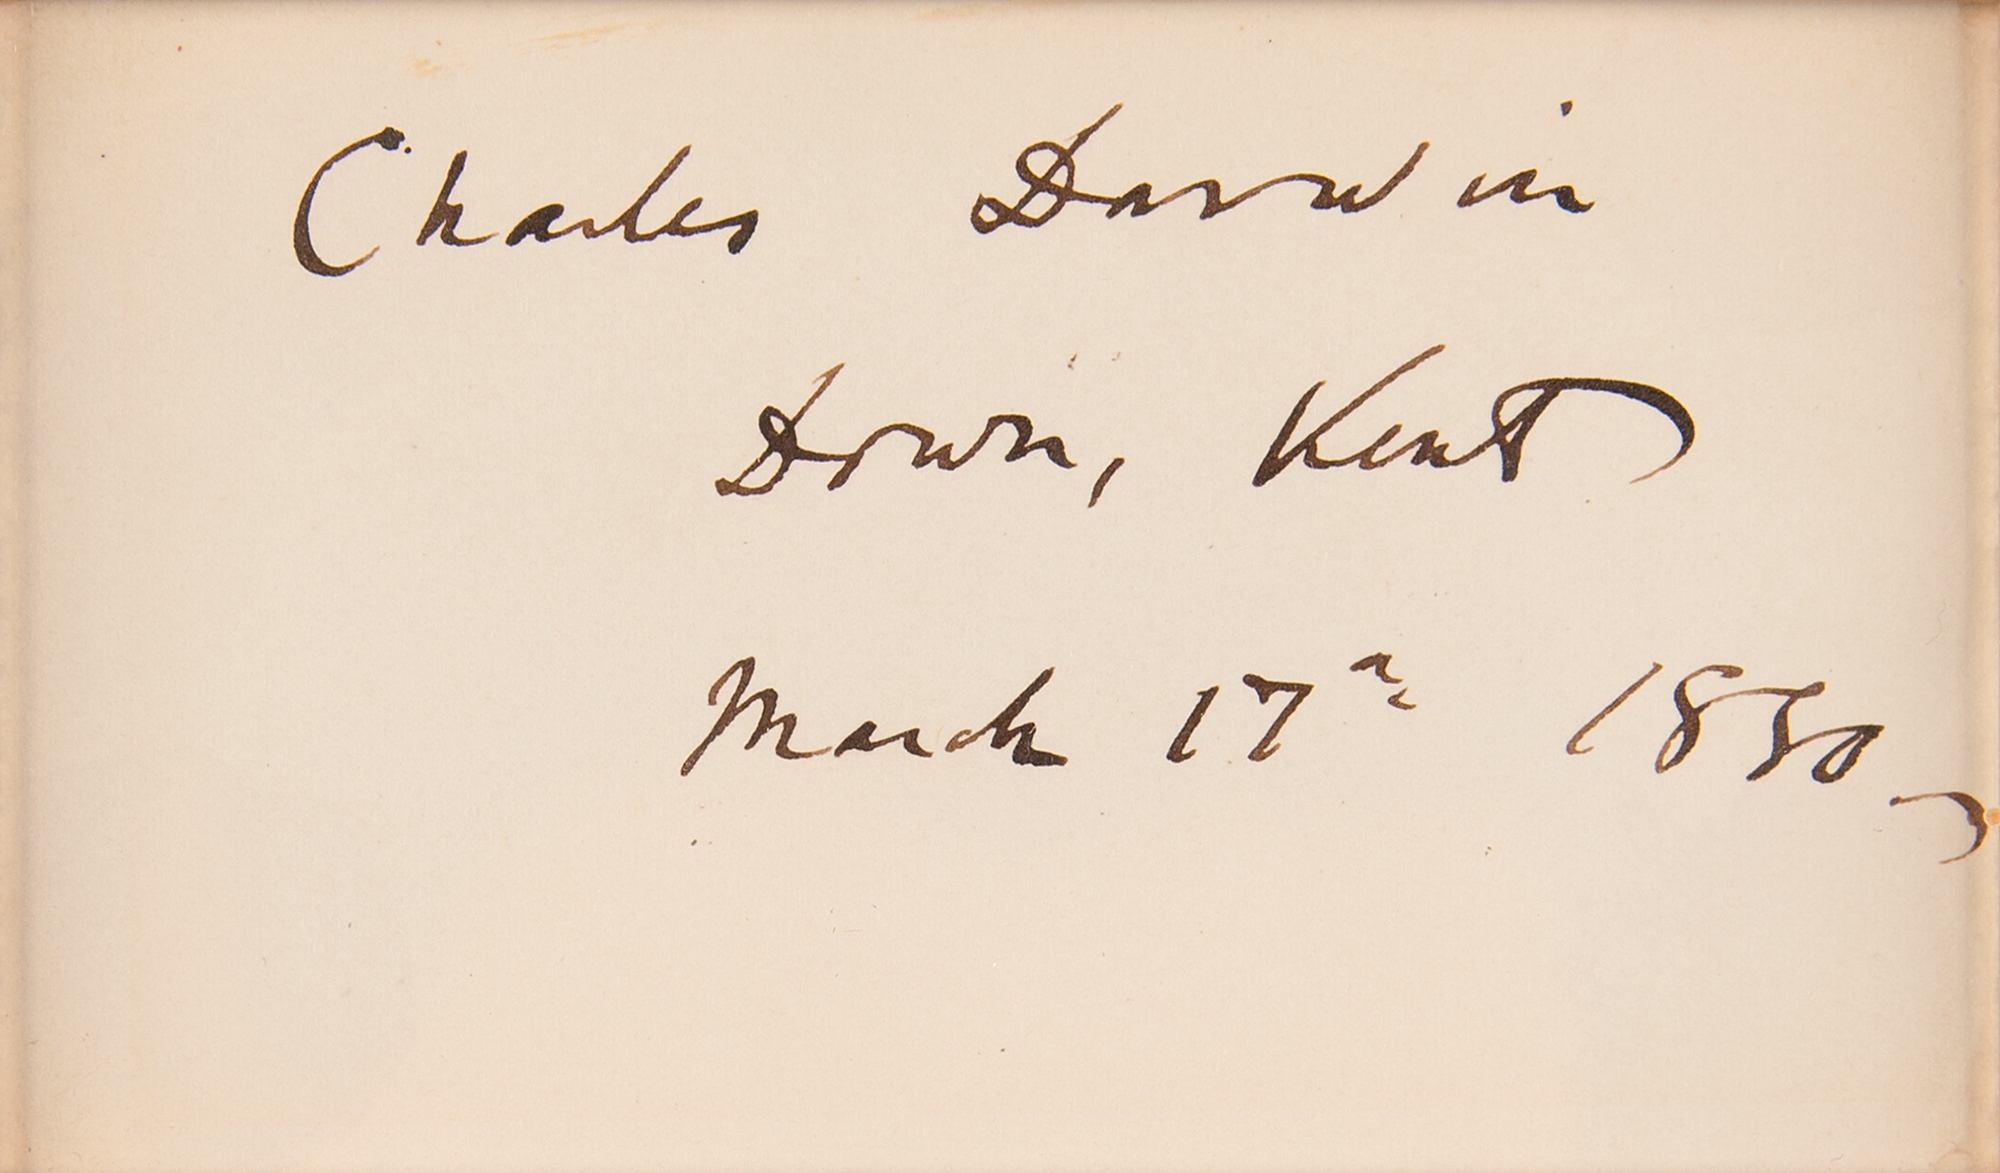 Charles Darwin
Down, Kent
March 17th